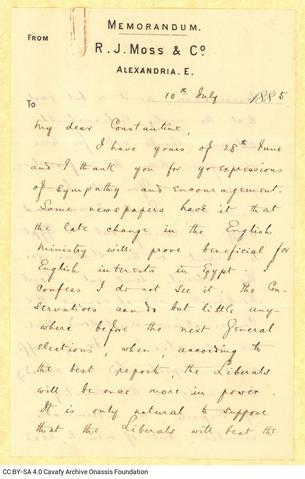 MEMORANDUM.
FROM
R. J. MOSS & Co.
ALEXANDRIA. E.
10th July 1885
TO
My dear Constantine,
I have yours of 28th June
and I thank you for yr expressions
of sympathy and encouragement.
Some newspapers have it that
the late change in the English
Ministry will prove beneficial for
English interests in Egypt. I
confess I do not see it. The Con-
servatives can do but little any-
where before the next General
elections, when, according to
the best reports the Liberals
will be once more in power.
It is only natural to suppose
that the Liberals will beat the
CC BY-SA 4.0 Cavafy Archive Onassis Foundation